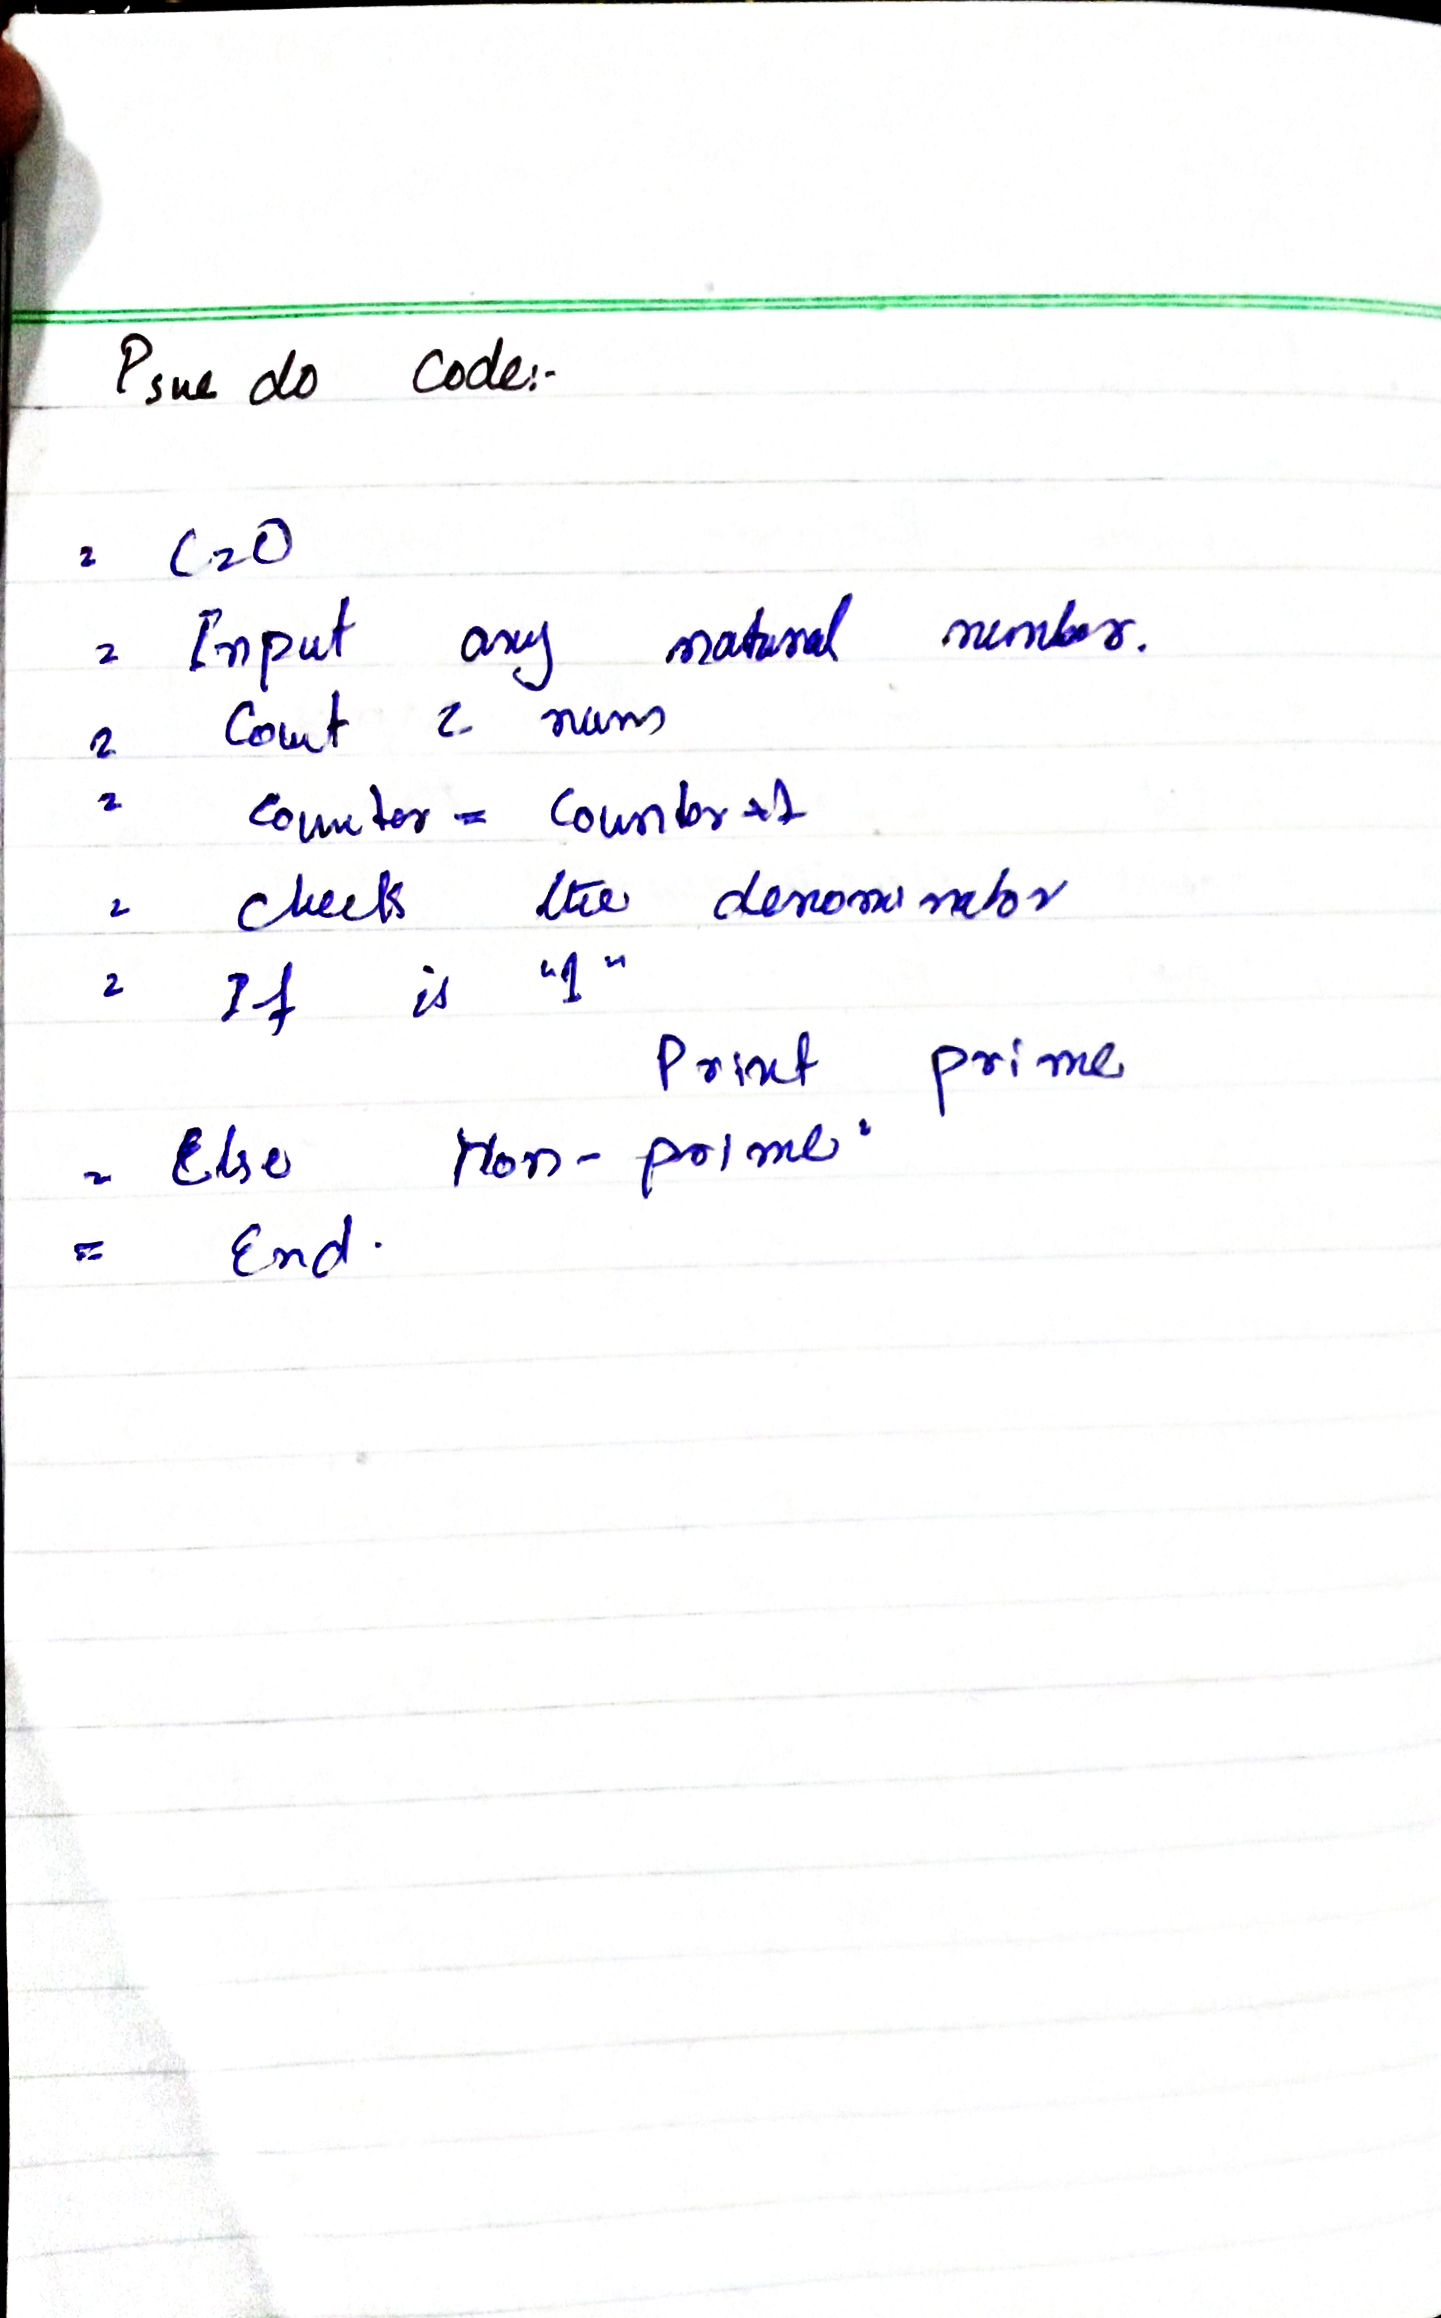 Psue do Code:-
= C=0
= Input any natural number.
= Count = num
= counter = Counter +1
= check the denominator
= If is "1"
Print prime
= Else Non-prime.
= End.